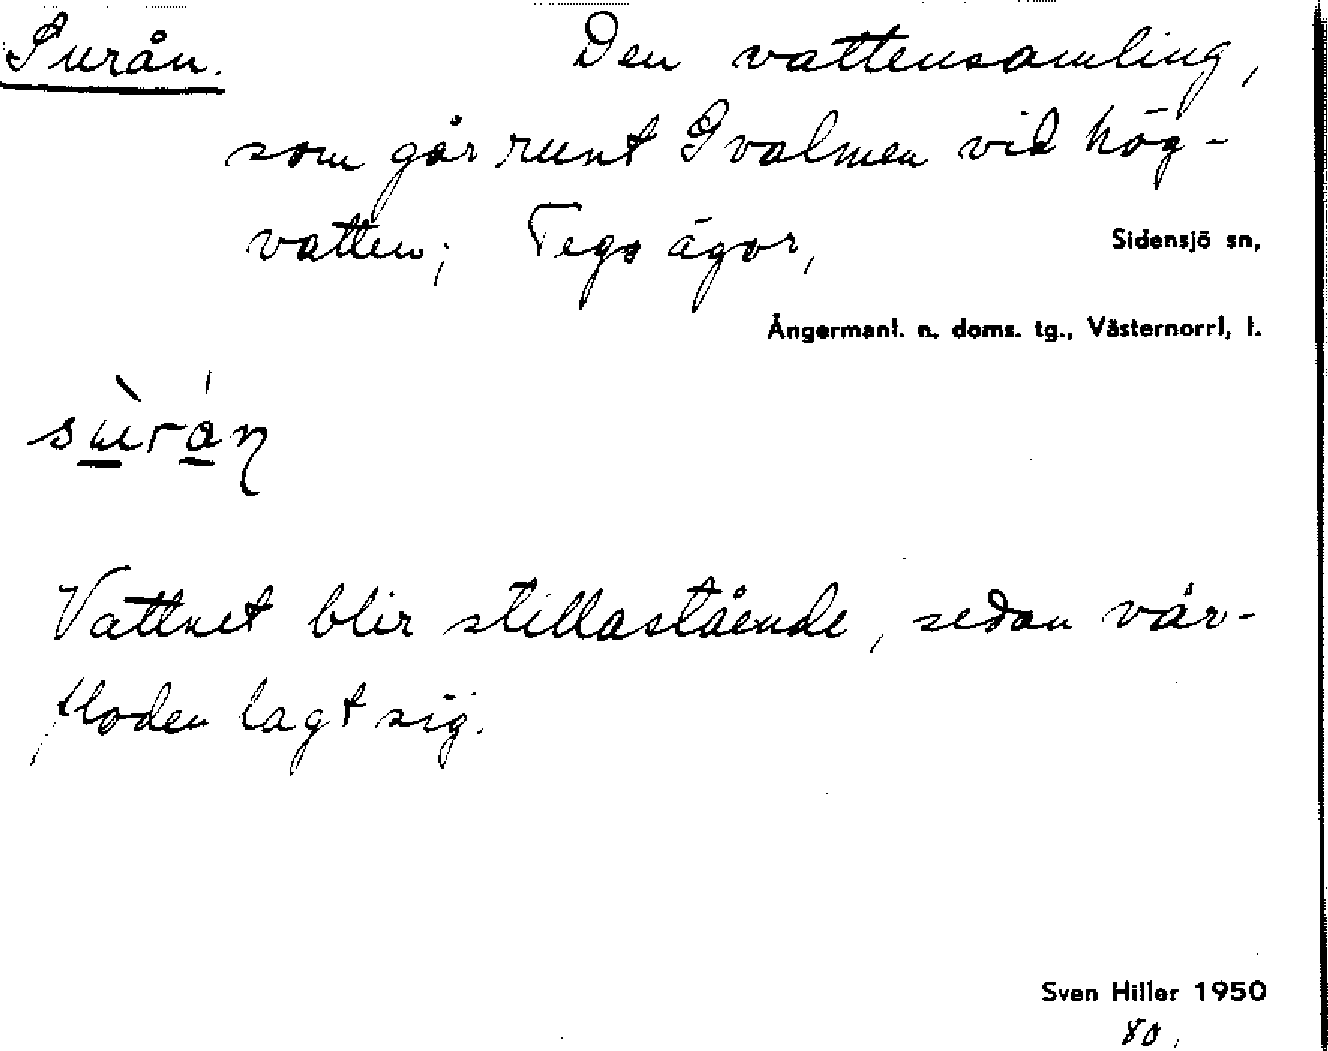 Surån. Den vattensamling,
som går runt Gvalmen vid hög-
vatten; Tegs ägor, Sidensjö sn,
Ångermanl. n. doms. tg., Västernorrl, l.
sùrán
Vattnet blir stillastående, sedan vår-
floden lagt sig.
Sven Hiller 1950
80.